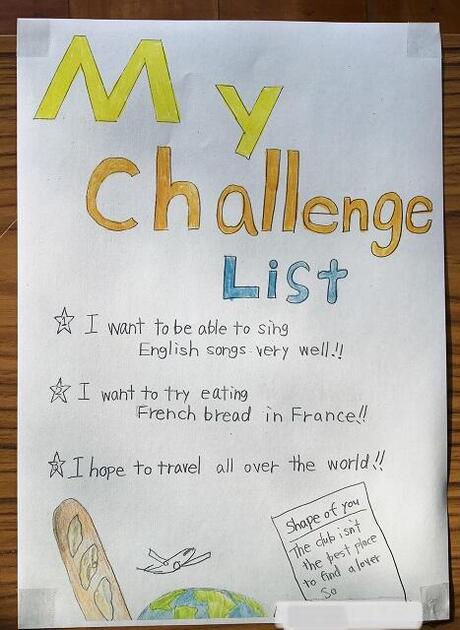 My
Challenge
List
1 I want to be able to sing
English songs very well!!
2 I want to try eating
French bread in France!!
3 I hope to travel all over the world!!
Shape of you
The club isn't
the best place
to find a lover
So